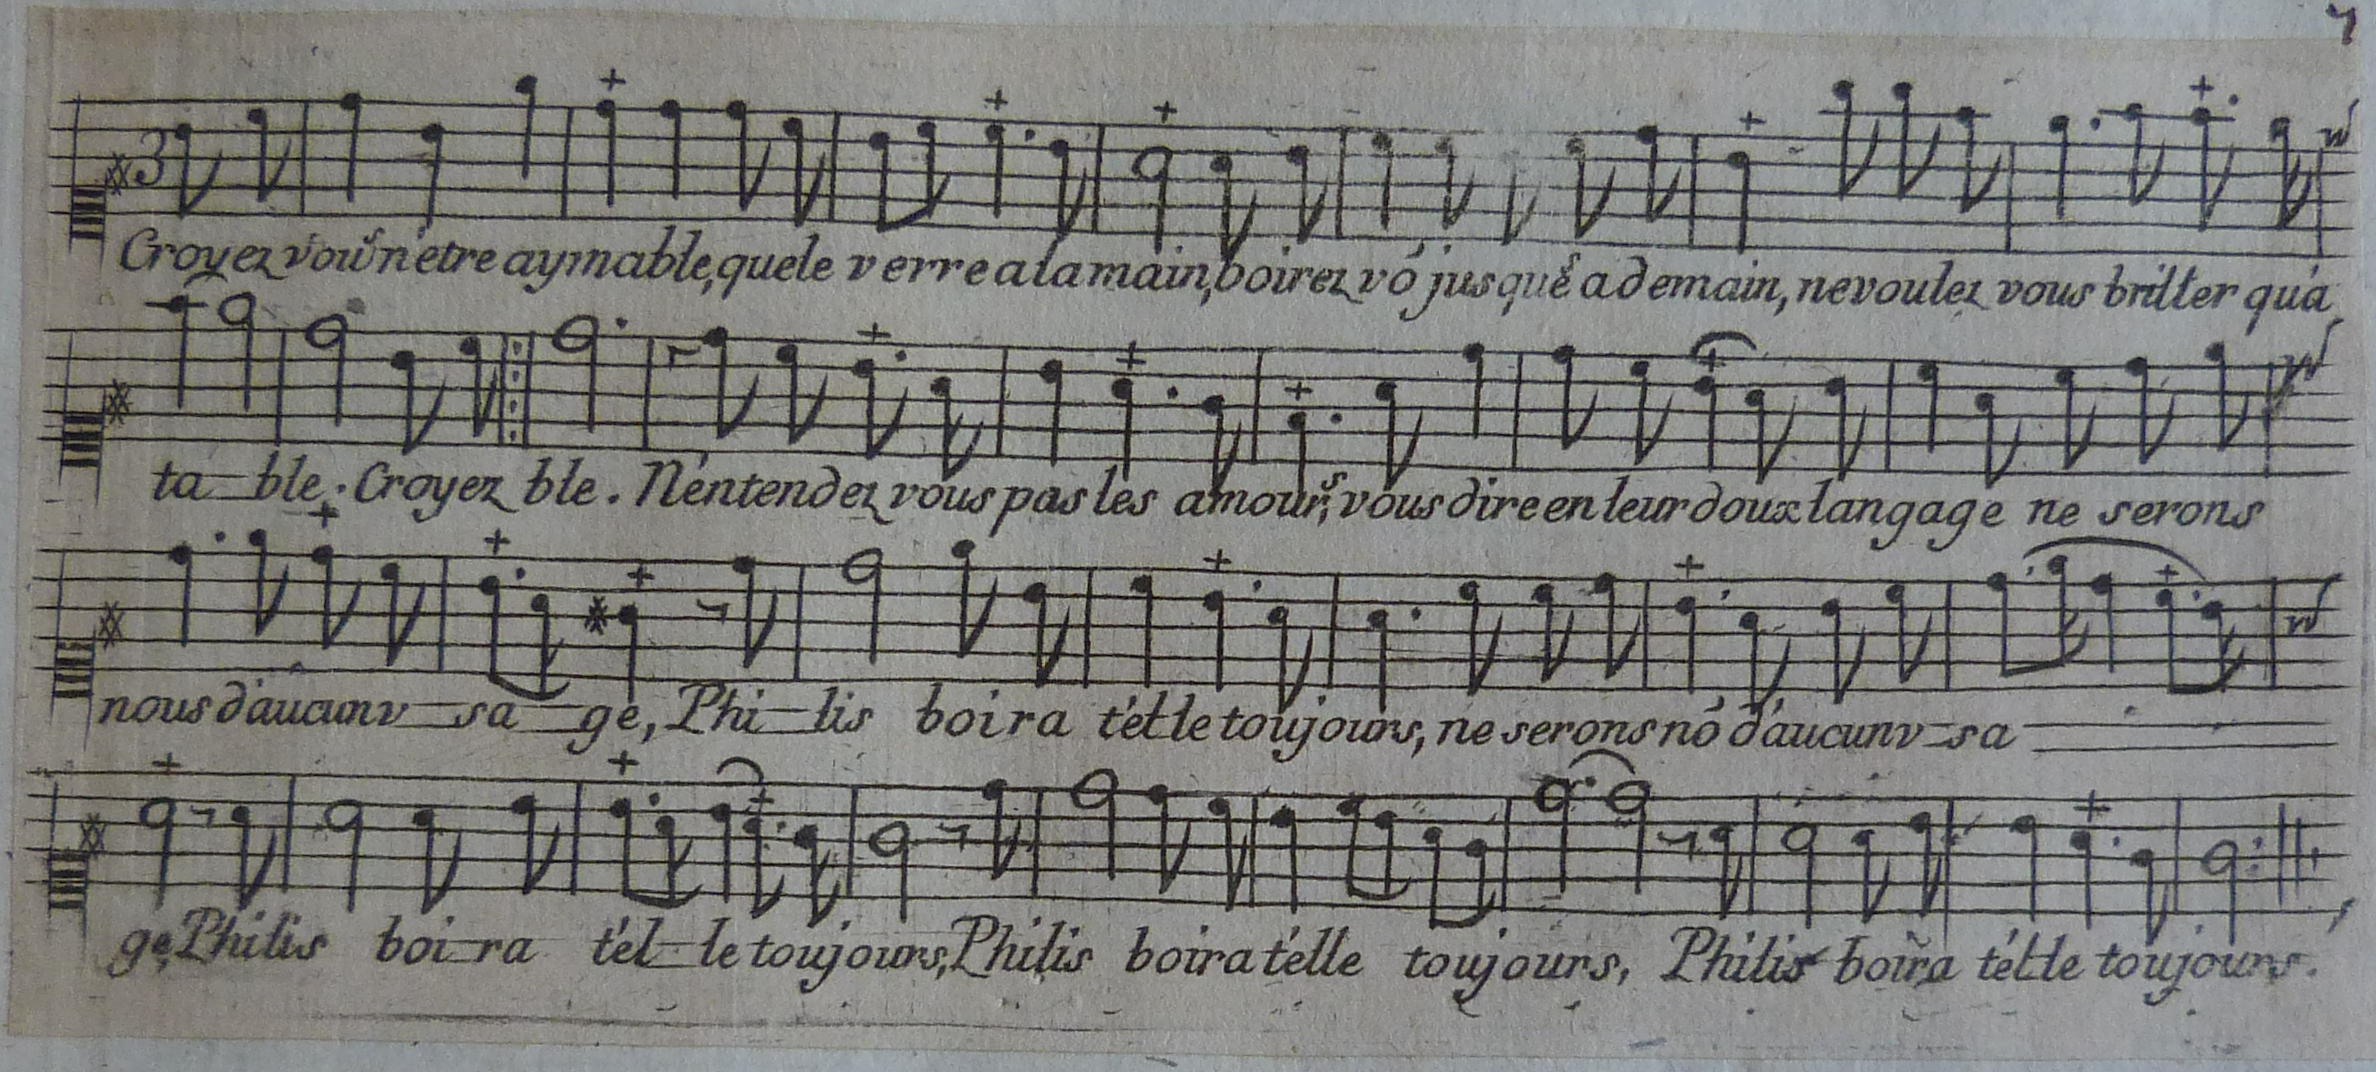 7
3
Croyez vous n'etre aymable, que le verre a la main, boirez vo' jusques a demain, ne voulez vous briller qu'a
ta—ble. Croyez ble. N'entendez vous pas les amours, vous dire en leur doux langage ne serons
nous d'aucun v—sa—ge, Phi—lis boira t'elle toujours, ne serons no' d'aucun v—sa
ge, Philis boi—ra t'el—le toujours, Philis boira t'elle toujours, Philis boira t'elle toujours.